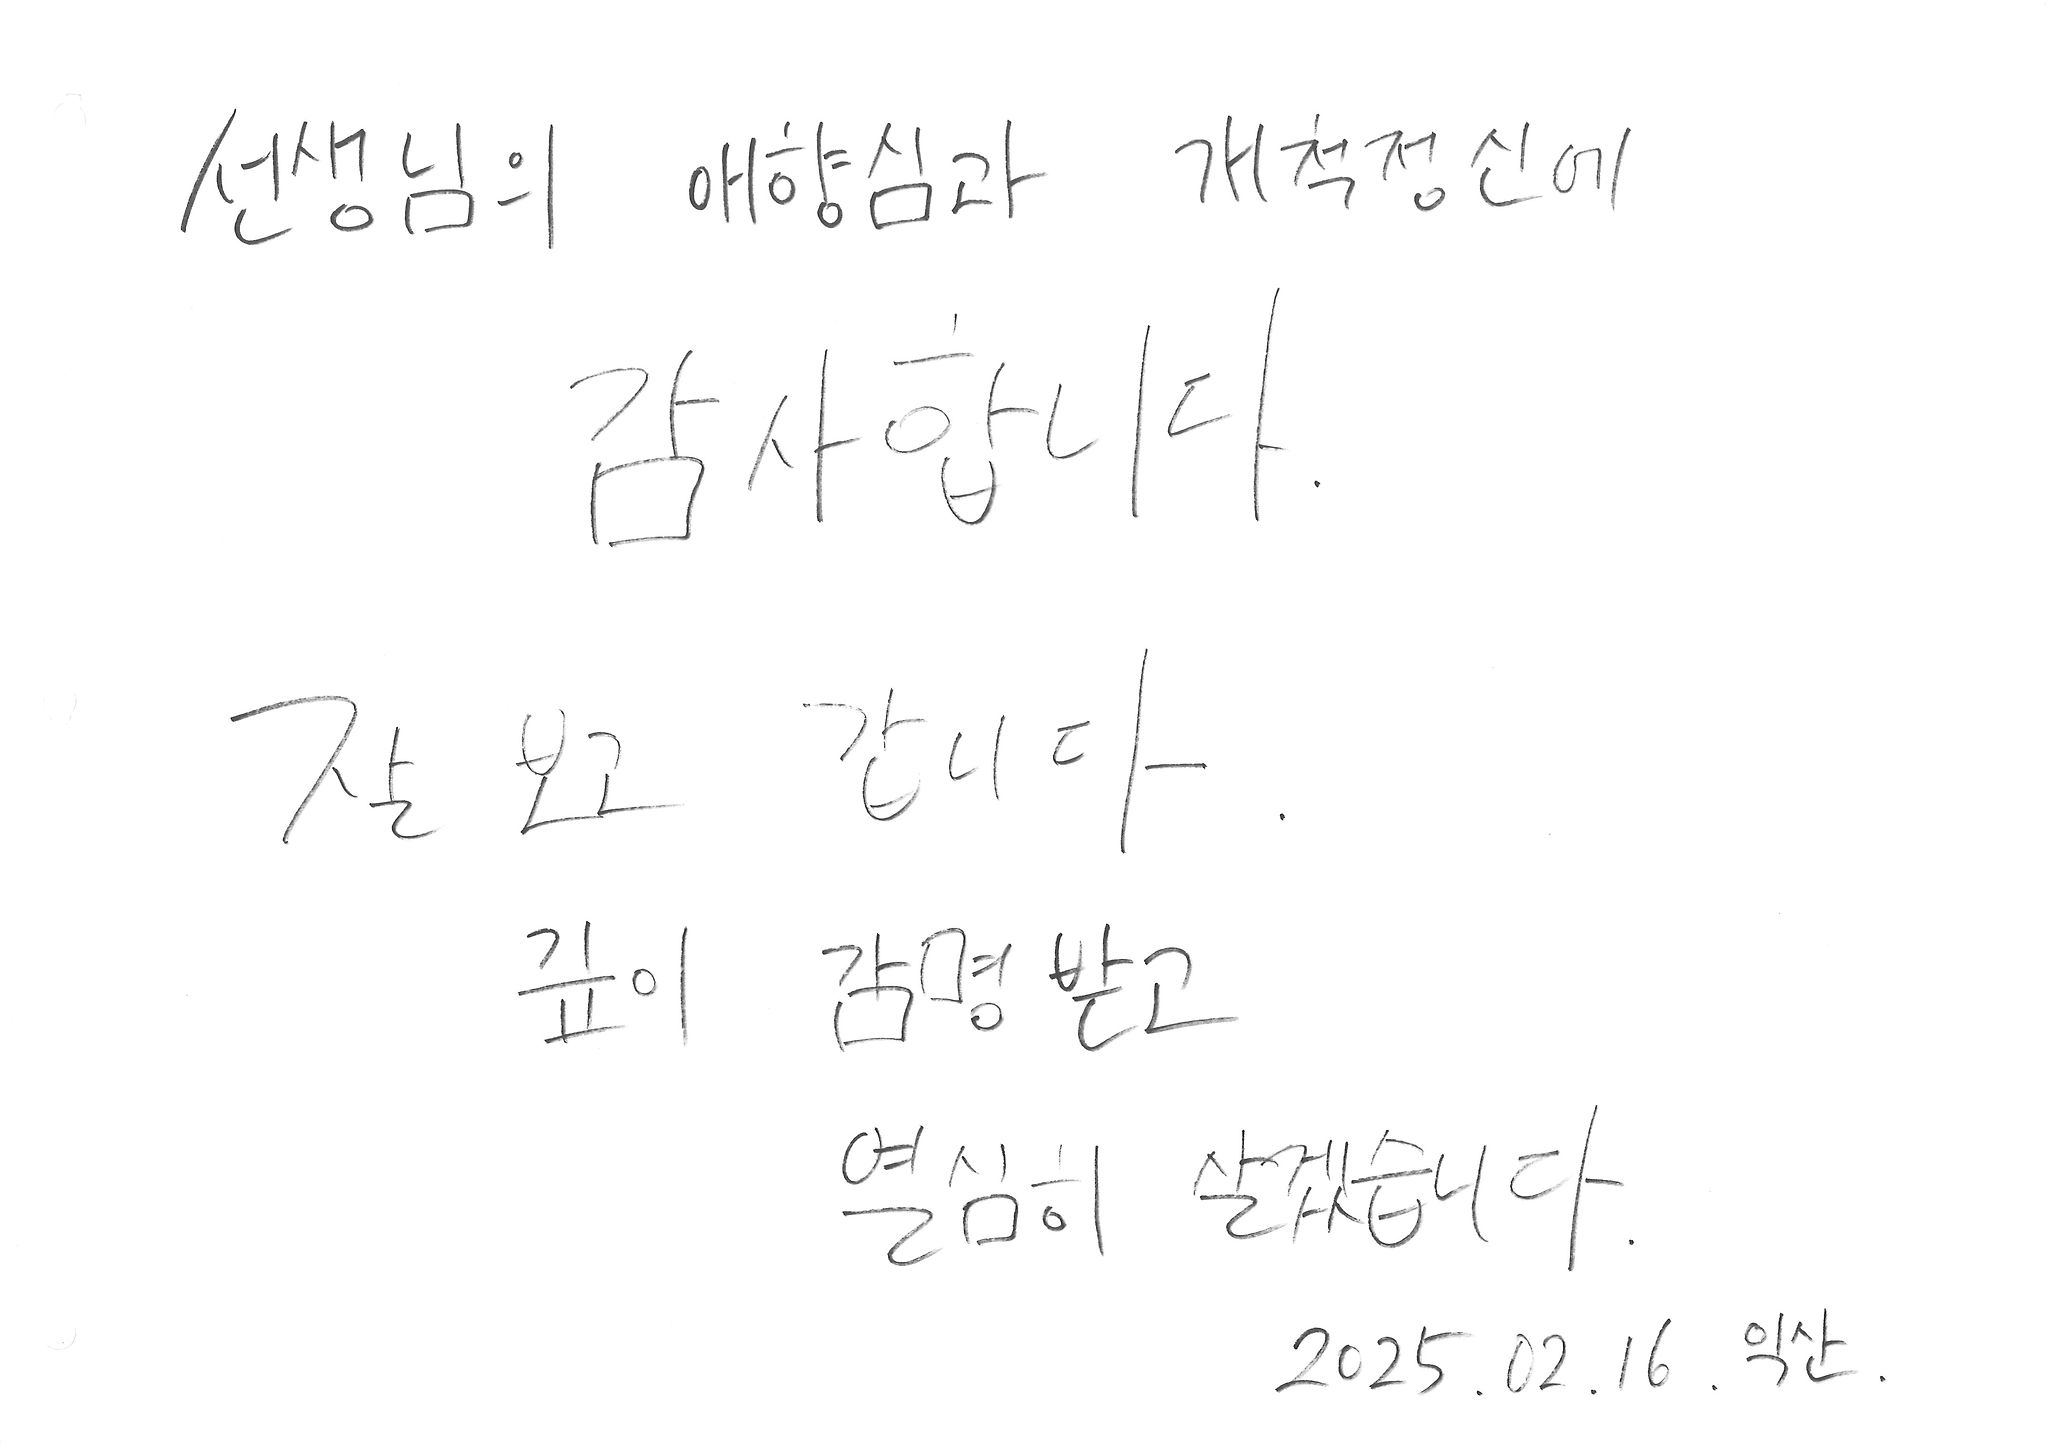 선생님의 애향심과 개척정신에
감사합니다.
잘 보고 갑니다.
깊이 감명받고
열심히 살겠습니다.
2025.02.16. 익산.